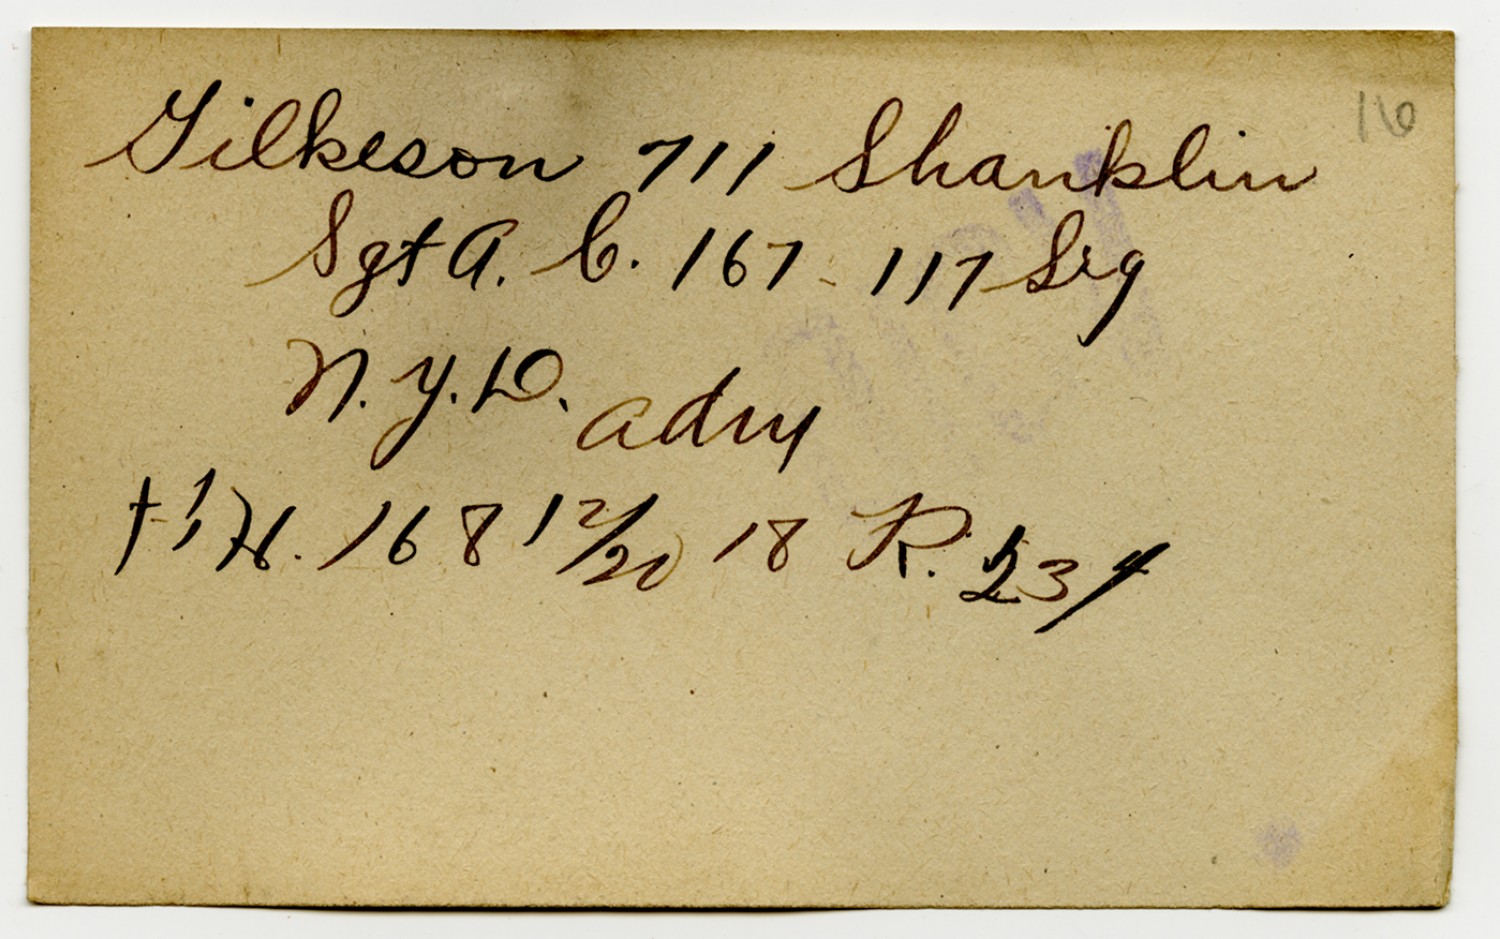 16
Gilkeson 711 Shanklin
Sgt A. C. 167 - 117 Sig
N.Y.D. adm
H. 168 12/20 18 R. 234